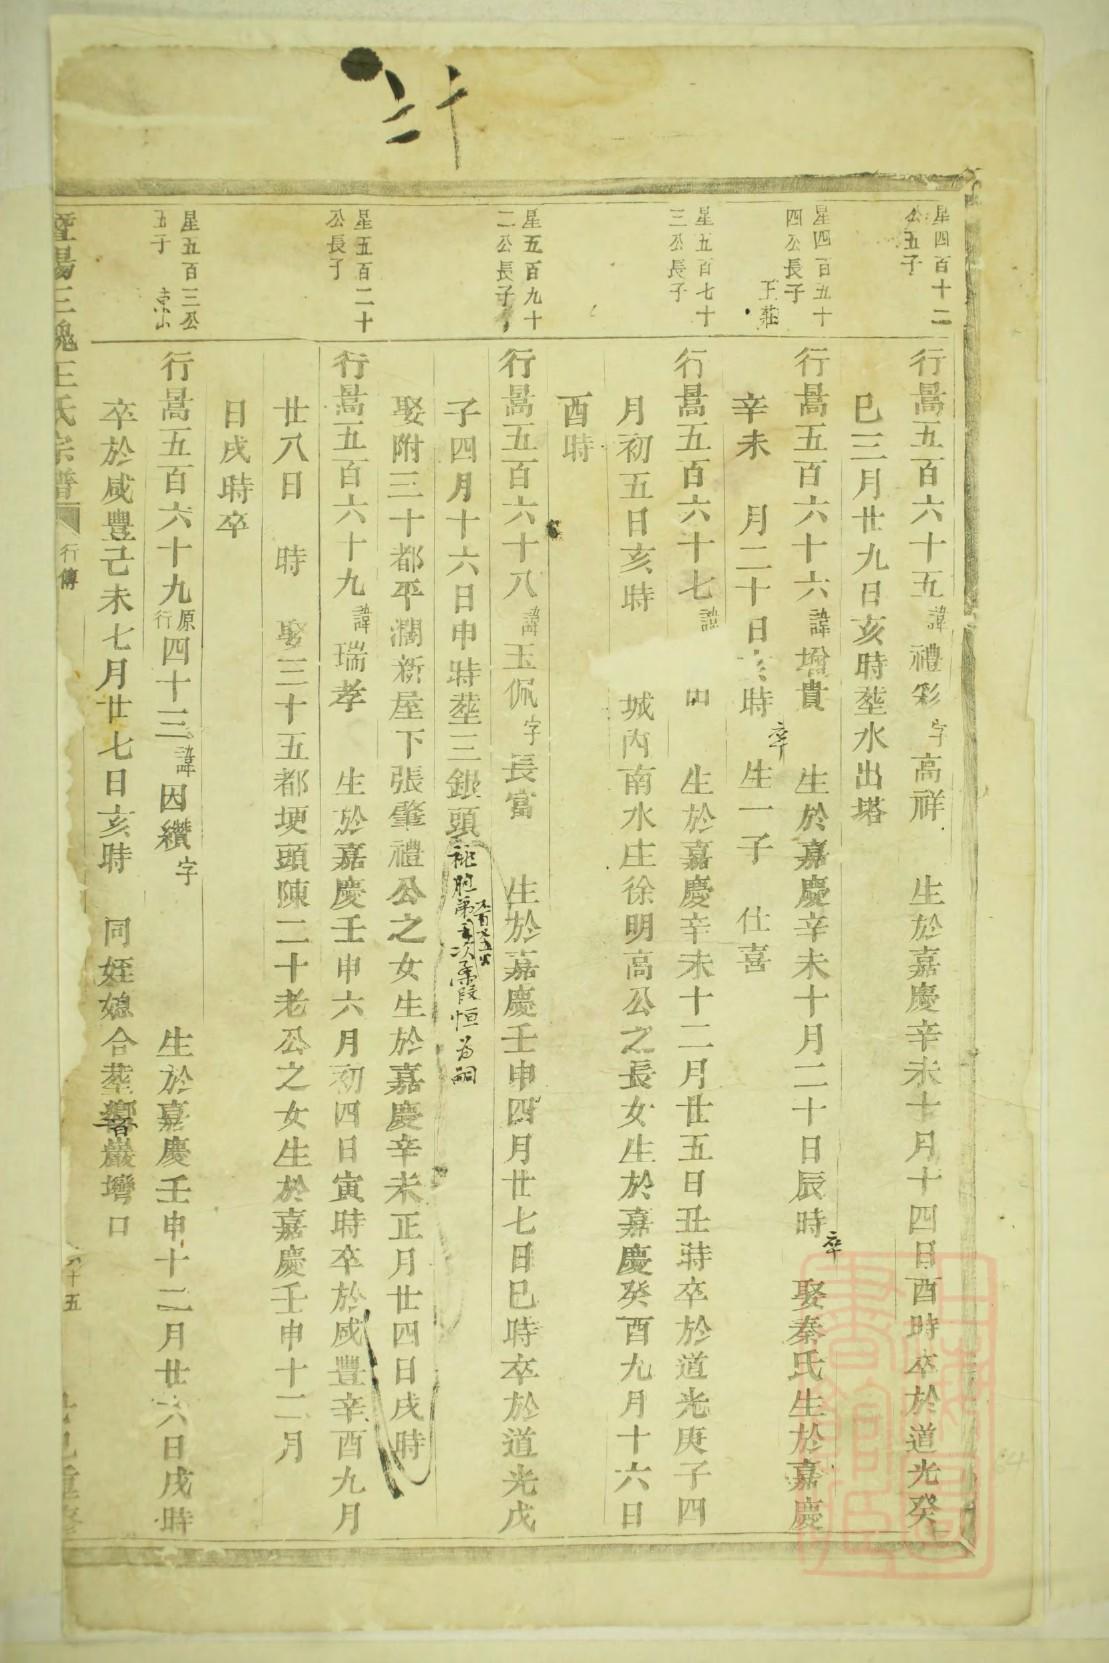 星四百十二
公五子
行暠五百六十五諱禮彩字高祥 生於嘉慶辛未十月十四日酉時卒於道光癸
巳三月廿九日亥時塟水出塔
星四百五十
四公長子
王莊
行暠五百六十六諱增貴 生於嘉慶辛未十月二十日辰時卒 娶秦氏生於嘉慶
辛未 月二十日 時卒 生一子 仕喜
星五百七十
三公長子
行暠五百六十七諱 生於嘉慶辛未十二月廿五日丑時卒於道光庚子四
月初五日亥時 城內南水庄徐明高公之長女生於嘉慶癸酉九月十六日
酉時
星五百九十
二公長子
行暠五百六十八諱玉佩字長富 生於嘉慶壬申四月廿七日巳時卒於道光戊
子四月十六日申時塟三銀頭
祧胞弟 次子 恒為嗣
娶附三十都平濶新屋下張肇禮公之女生於嘉慶辛未正月廿四日戌時
星五百二十
公長子
行暠五百六十九諱瑞孝 生於嘉慶壬申六月初四日寅時卒於咸豐辛酉九月
廿八日 時 娶三十五都埂頭陳二十老公之女生於嘉慶壬申十二月
日戌時卒
星五百三公
五子
東山
行暠五百六十九原行四十三諱因纘字 生於嘉慶壬申十二月廿六日戌時
卒於咸豐己未七月廿七日亥時 同姪媳合塟響巖灣口
暨陽三槐王氏宗譜
行傳
六十五
重修